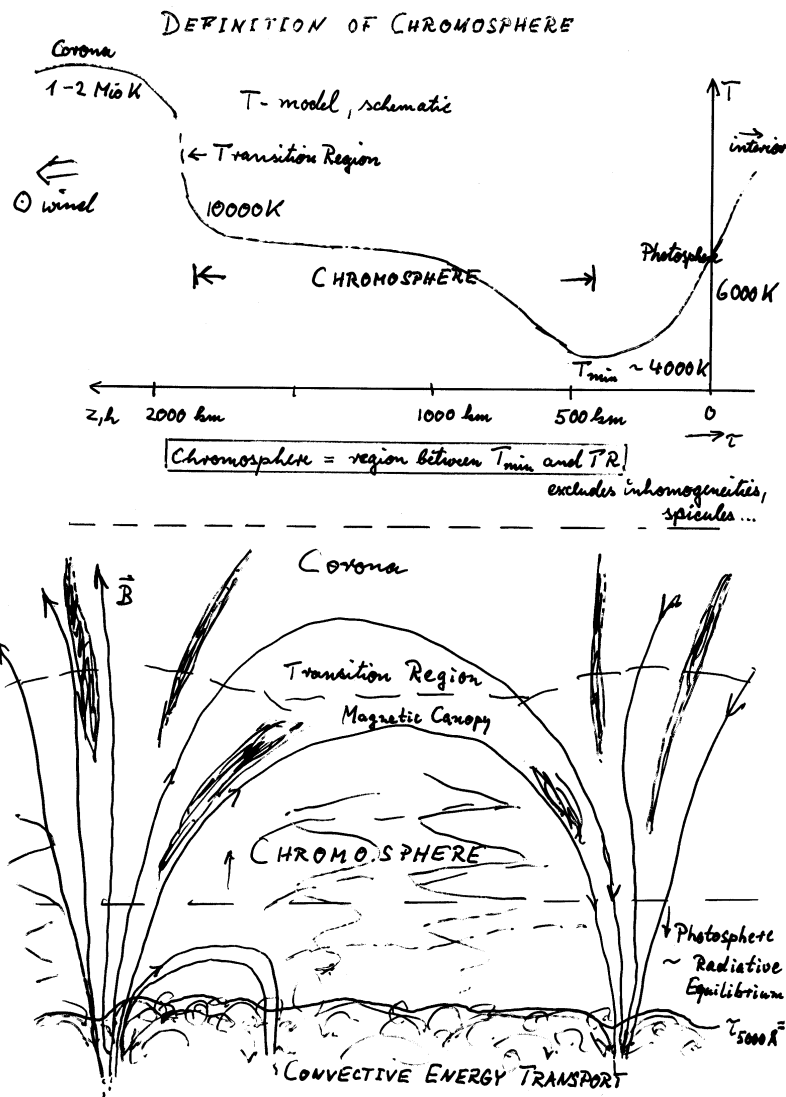 DEFINITION OF CHROMOSPHERE
Corona
1-2 Mio K
T-model, schematic
T
← Transition Region
→
interior
⇐
⊙ wind
10000K
Photosphere
|← CHROMOSPHERE →|
6000K
Tmin ~ 4000K
z,h 2000 km 1000 km 500 km 0
→ τ
Chromosphere = region between Tmin and TR
excludes inhomogeneities,
spicules...
Corona
B⃗
Transition Region
Magnetic Canopy
CHROMOSPHERE
Photosphere
~ Radiative
Equilibrium
τ5000Å=
CONVECTIVE ENERGY TRANSPORT